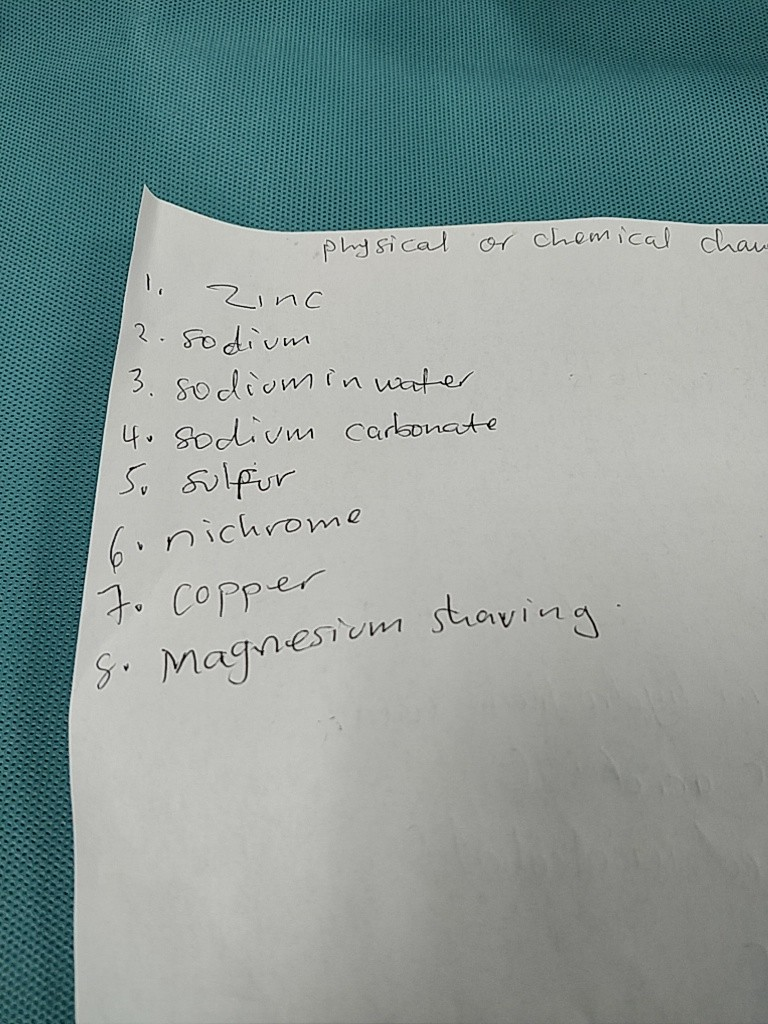 physical or chemical
1. Zinc
2. sodium
3. sodium in water
4. sodium carbonate
5. sulpur
6. nichrome
7. copper
8. Magnesium shaving.